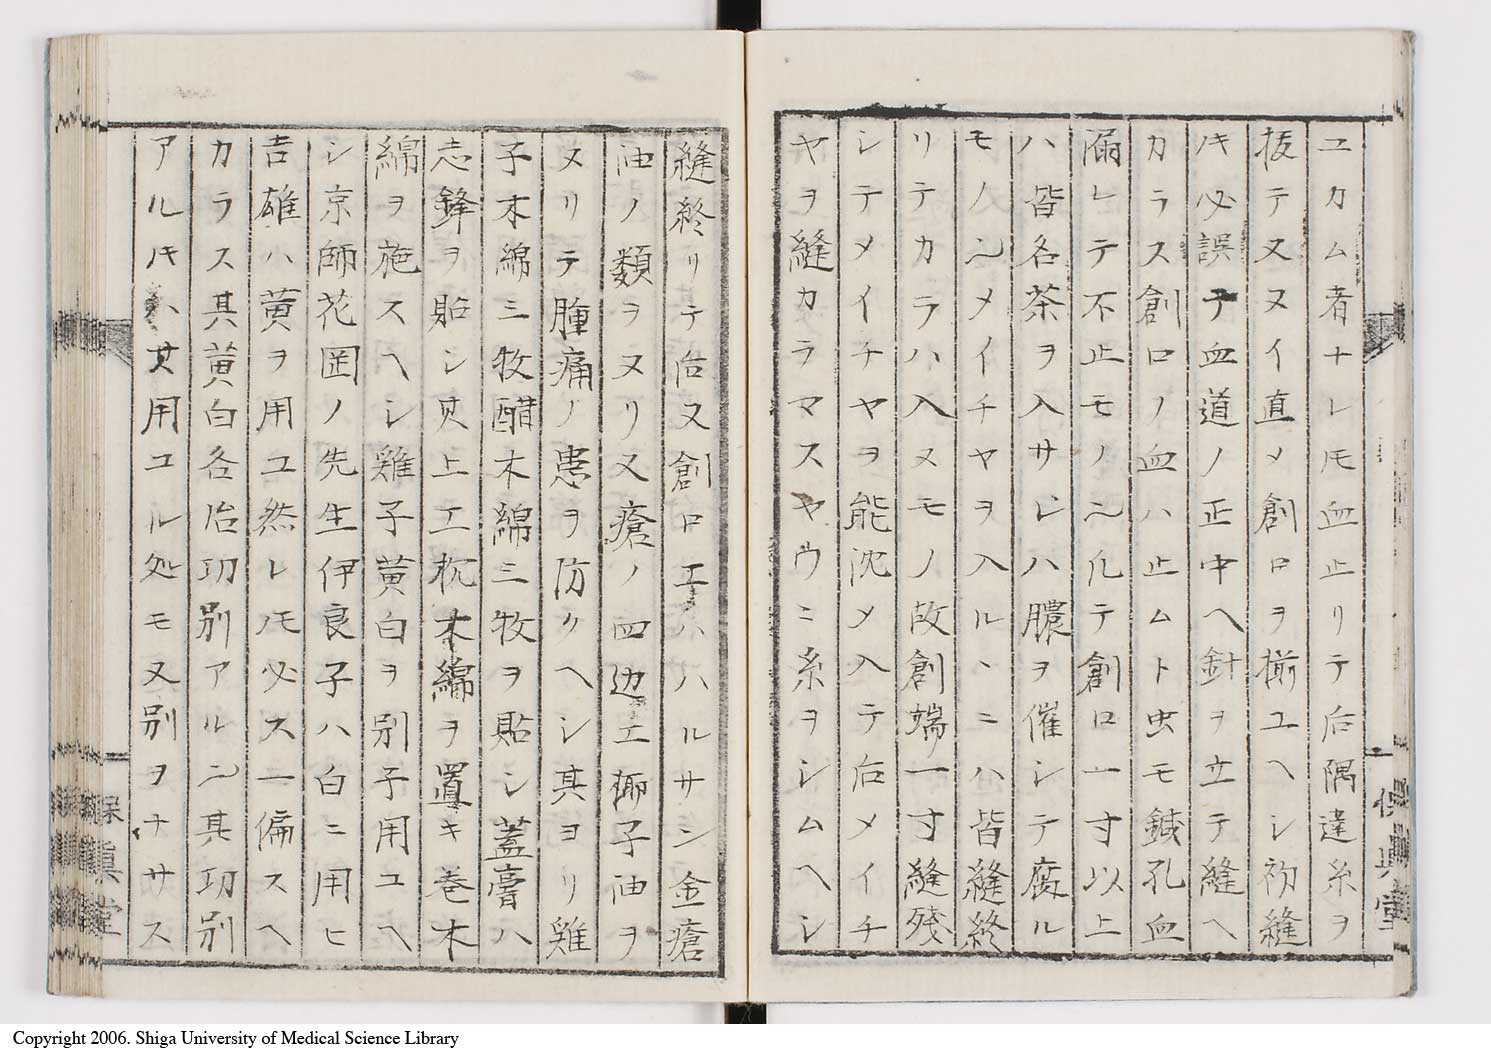 ユカム者ナレ𪜈血止リテ后隅違糸ヲ
抜テ又ヌイ直メ創口ヲ揃ユヘシ初縫
キ必誤テ血道ノ正中ヘ針ヲ立テ縫ヘ
カラス創口ノ血ハ止ムト虫モ鍼孔血
漏レテ不止モノ凡テ創口一寸以上
ハ皆各茶ヲ入サレハ膿ヲ催シテ腐ル
モノメイチヤヲ入ルヽニハ皆縫終
リテカラハ入ヌモノ故創端一寸縫残
シテメイチヤヲ能沈メ入テ后メイチ
ヤヲ縫カラマスヤウニ糸ヲシムヘシ
保真堂
縫終リテ后又創口エハハルサン金瘡
油ノ類ヲヌリ又瘡ノ四边エ椰子油ヲ
ヌリテ腫痛ノ患ヲ防クヘシ其ヨリ雞
子木綿三牧醋木綿三牧ヲ貼シ蓋膏ハ
志鋒ヲ貼シ其上エ枕木綿ヲ置キ巻木
綿ヲ施スヘシ雞子黄白ヲ別子用ユヘ
シ京師花岡ノ先生伊良子ハ白ニ用ヒ
吉雄ハ黄ヲ用ユ然レ𪜈必ス一偏スヘ
カラス其黄白各治功別アル其功別
アルキハ其用ユル処モ又別ヲナサス
保真堂